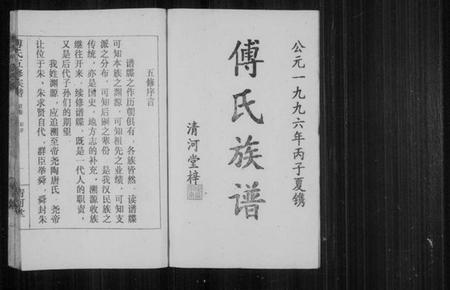 公元一九九六年丙子夏镌
傅氏族谱
清河堂梓
五修序言
谱牒之作历朝俱有，各族皆然。读谱牒
可知本族之渊源，可知祖先之业绩，可知支
派之分布，可知后嗣之蕃份，是我汉民族之
传统，亦是国史、地方志的补充，溯源收族
继往开来，续修谱牒，既是一代人的职责，
又是后代子孙们的期望。
我姓渊源，应追溯至帝尧陶唐氏，尧帝
让位于朱，朱求贤自代，群臣举舜，舜封朱